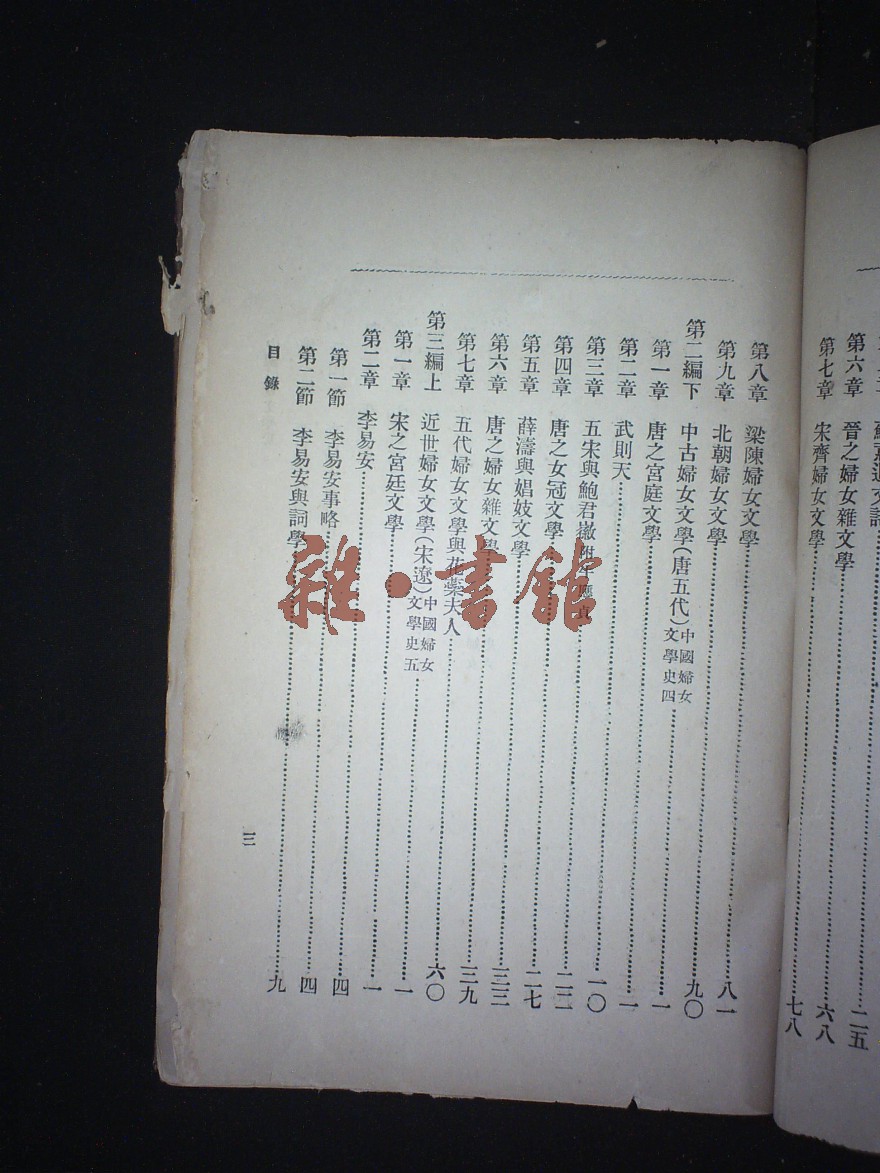 第六章 晉之婦女雜文學……六八
第七章 宋齊婦女文學……七八
第八章 梁陳婦女文學……八一
第九章 北朝婦女文學……九〇
第二編下 中古婦女文學(唐五代)中國婦女文學史四……一
第一章 唐之宮庭文學……一
第二章 武則天……一〇
第三章 五宋與鮑君徽附牛應貞……二二
第四章 唐之女冠文學……二七
第五章 薛濤與娼妓文學……三三
第六章 唐之婦女雜文學……三九
第七章 五代婦女文學與花蕊夫人……六〇
第三編上 近世婦女文學(宋遼)中國婦女文學史五……一
第一章 宋之宮廷文學……一
第二章 李易安……四
第一節 李易安事略……四
第二節 李易安與詞學……九
目錄
三
雜·書館